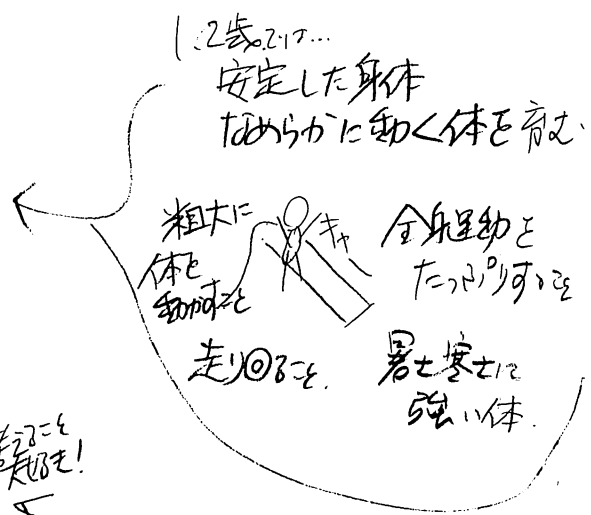 1、2歳では…
安定した身体
なめらかに動く体を育む
粗大に
体を
動かすこと
キャ
全身運動を
たっぷりすること
走り回ること.
暑さ寒さに
強い体.
大好き!